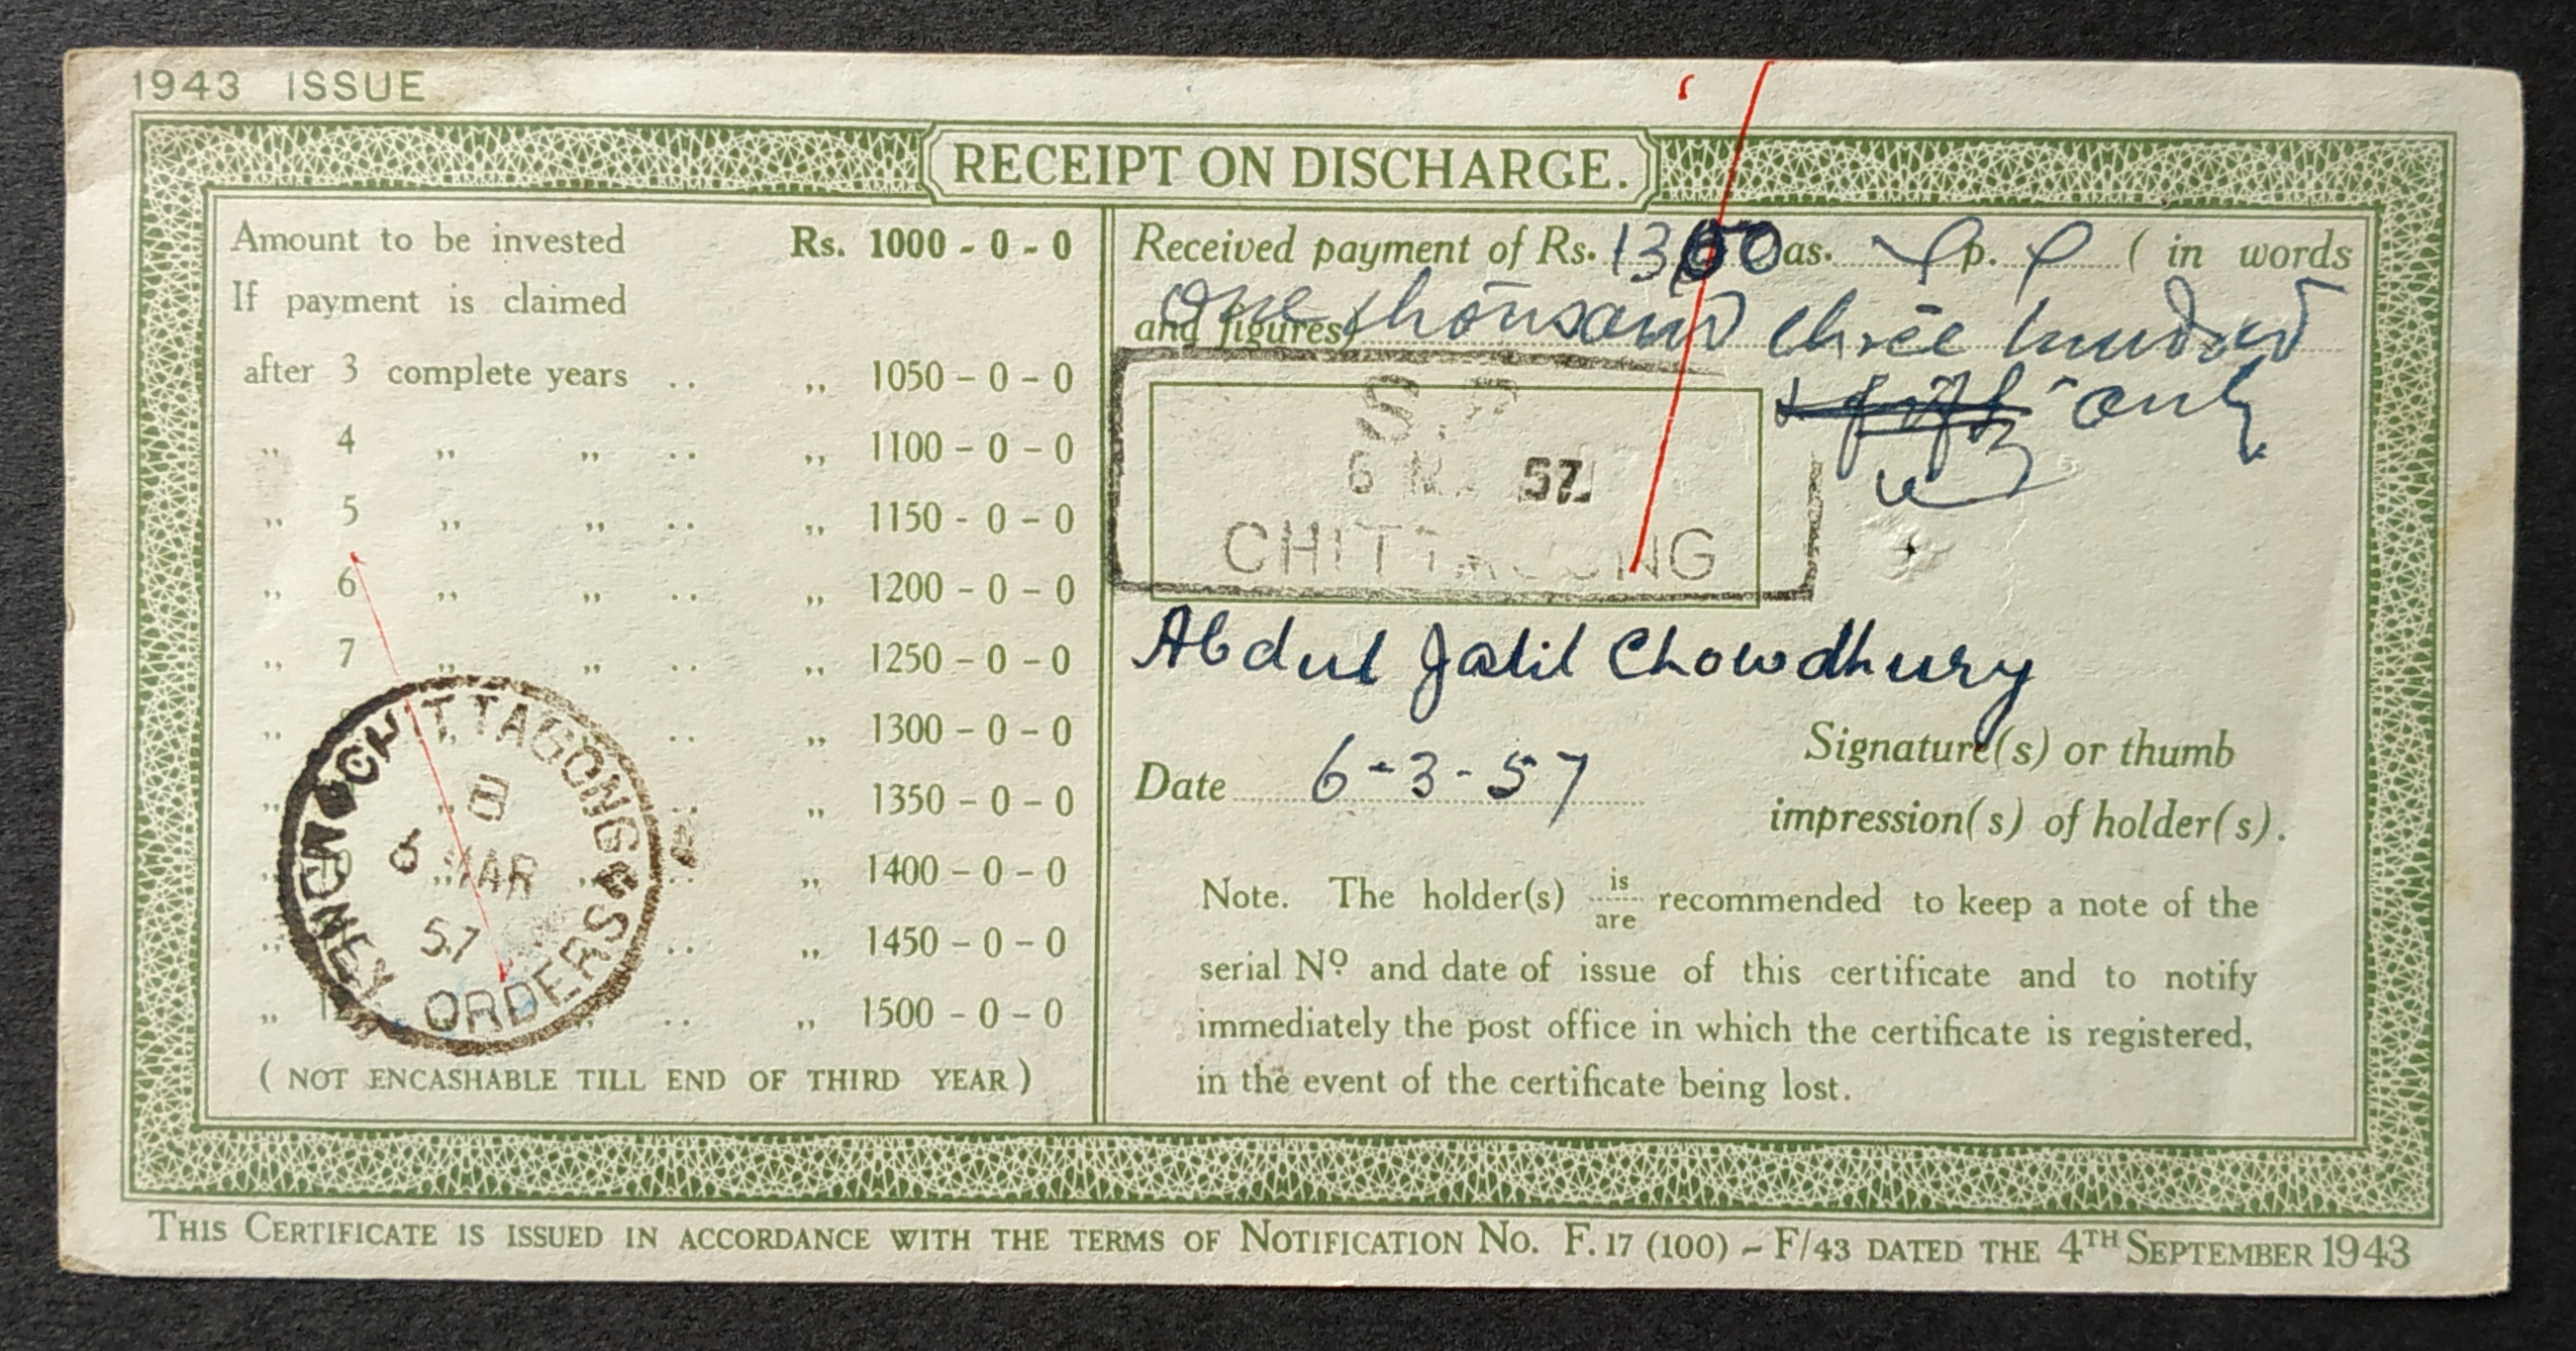 1943 ISSUE
RECEIPT ON DISCHARGE.
Amount to be invested Rs. 1000 - 0 - 0
If payment is claimed
after 3 complete years .. ,, 1050 - 0 - 0
,, 4 ,, ,, .. ,, 1100 - 0 - 0
,, 5 ,, ,, .. ,, 1150 - 0 - 0
,, 6 ,, ,, .. ,, 1200 - 0 - 0
,, 7 ,, ,, .. ,, 1250 - 0 - 0
,, ,, .. ,, 1300 - 0 - 0
,, ,, .. ,, 1350 - 0 - 0
,, ,, .. ,, 1400 - 0 - 0
,, .. ,, 1450 - 0 - 0
,, ,, .. ,, 1500 - 0 - 0
( NOT ENCASHABLE TILL END OF THIRD YEAR )
CHITTAGONG
B
6 MAR
57
MONEY ORDERS
Received payment of Rs. 1300 as. p. ( in words
and figures) One thousand three hundred
& fifty only
S.
6 57
CHITTAGONG
Abdul Jalil Chowdhury
Signature(s) or thumb
Date 6-3-57
impression(s) of holder(s).
Note. The holder(s) is/are recommended to keep a note of the
serial Nº and date of issue of this certificate and to notify
immediately the post office in which the certificate is registered,
in the event of the certificate being lost.
THIS CERTIFICATE IS ISSUED IN ACCORDANCE WITH THE TERMS OF NOTIFICATION NO. F. 17 (100) - F/43 DATED THE 4TH SEPTEMBER 1943